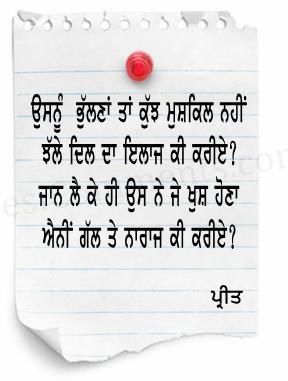 ਉਸਨੂੰ ਭੁੱਲਣਾਂ ਤਾਂ ਕੁੱਝ ਮੁਸ਼ਕਿਲ ਨਹੀਂ
ਝੱਲੇ ਦਿਲ ਦਾ ਇਲਾਜ ਕੀ ਕਰੀਏ?
ਜਾਨ ਲੈ ਕੇ ਹੀ ਉਸ ਨੇ ਜੇ ਖੁਸ਼ ਹੋਣਾ
ਐਨੀਂ ਗੱਲ ਤੇ ਨਾਰਾਜ ਕੀ ਕਰੀਏ?
ਪ੍ਰੀਤ